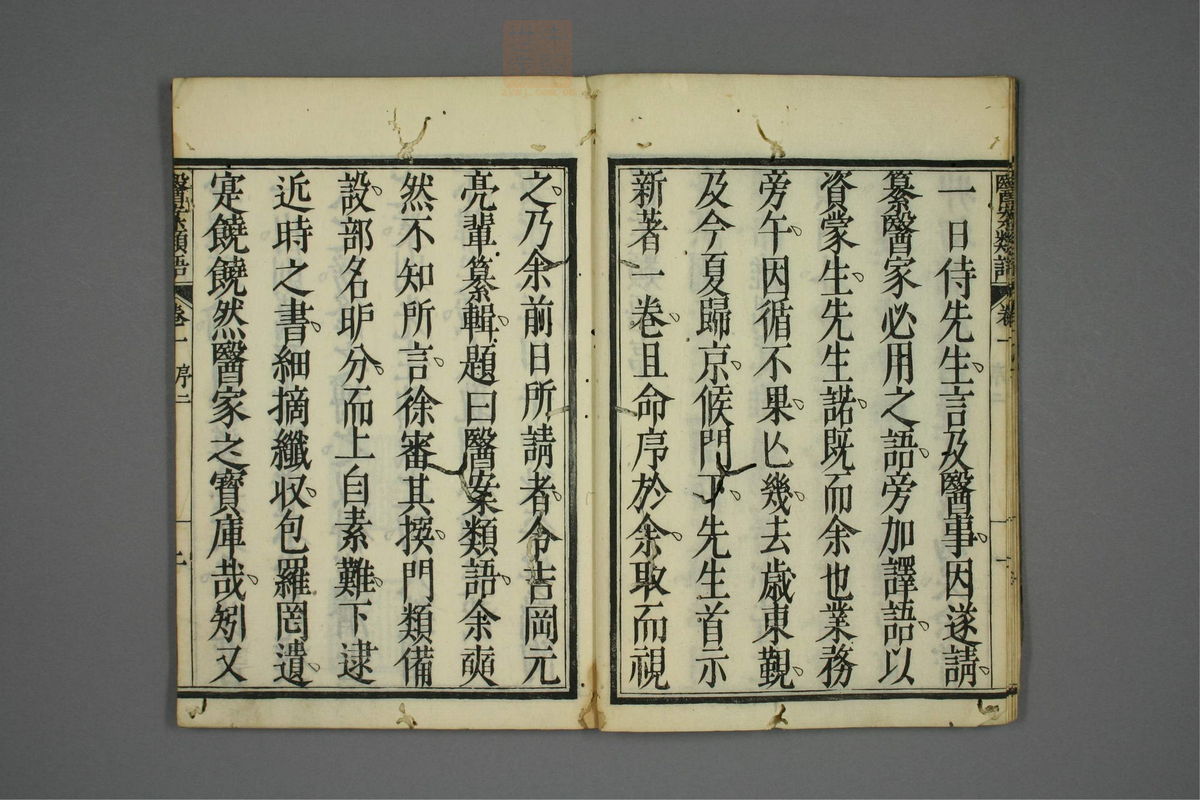 一日侍先生言及醫事因遂請
纂醫家必用之語旁加譯語以
資蒙生先生諾既而余也業務
旁午因循不果亾幾去歲東覲
及今夏歸京候門下先生首示
新著一卷且命序於余取而視
之乃余前日所請者令吉岡元
亮輩纂輯題曰醫案類語余奭
然不知所言徐審其撰門類備
設部名昈分而上自素難下逮
近時之書細摘纖収包羅罔遺
寔饒饒然醫家之寶庫哉矧又
醫案類語 卷一 序二